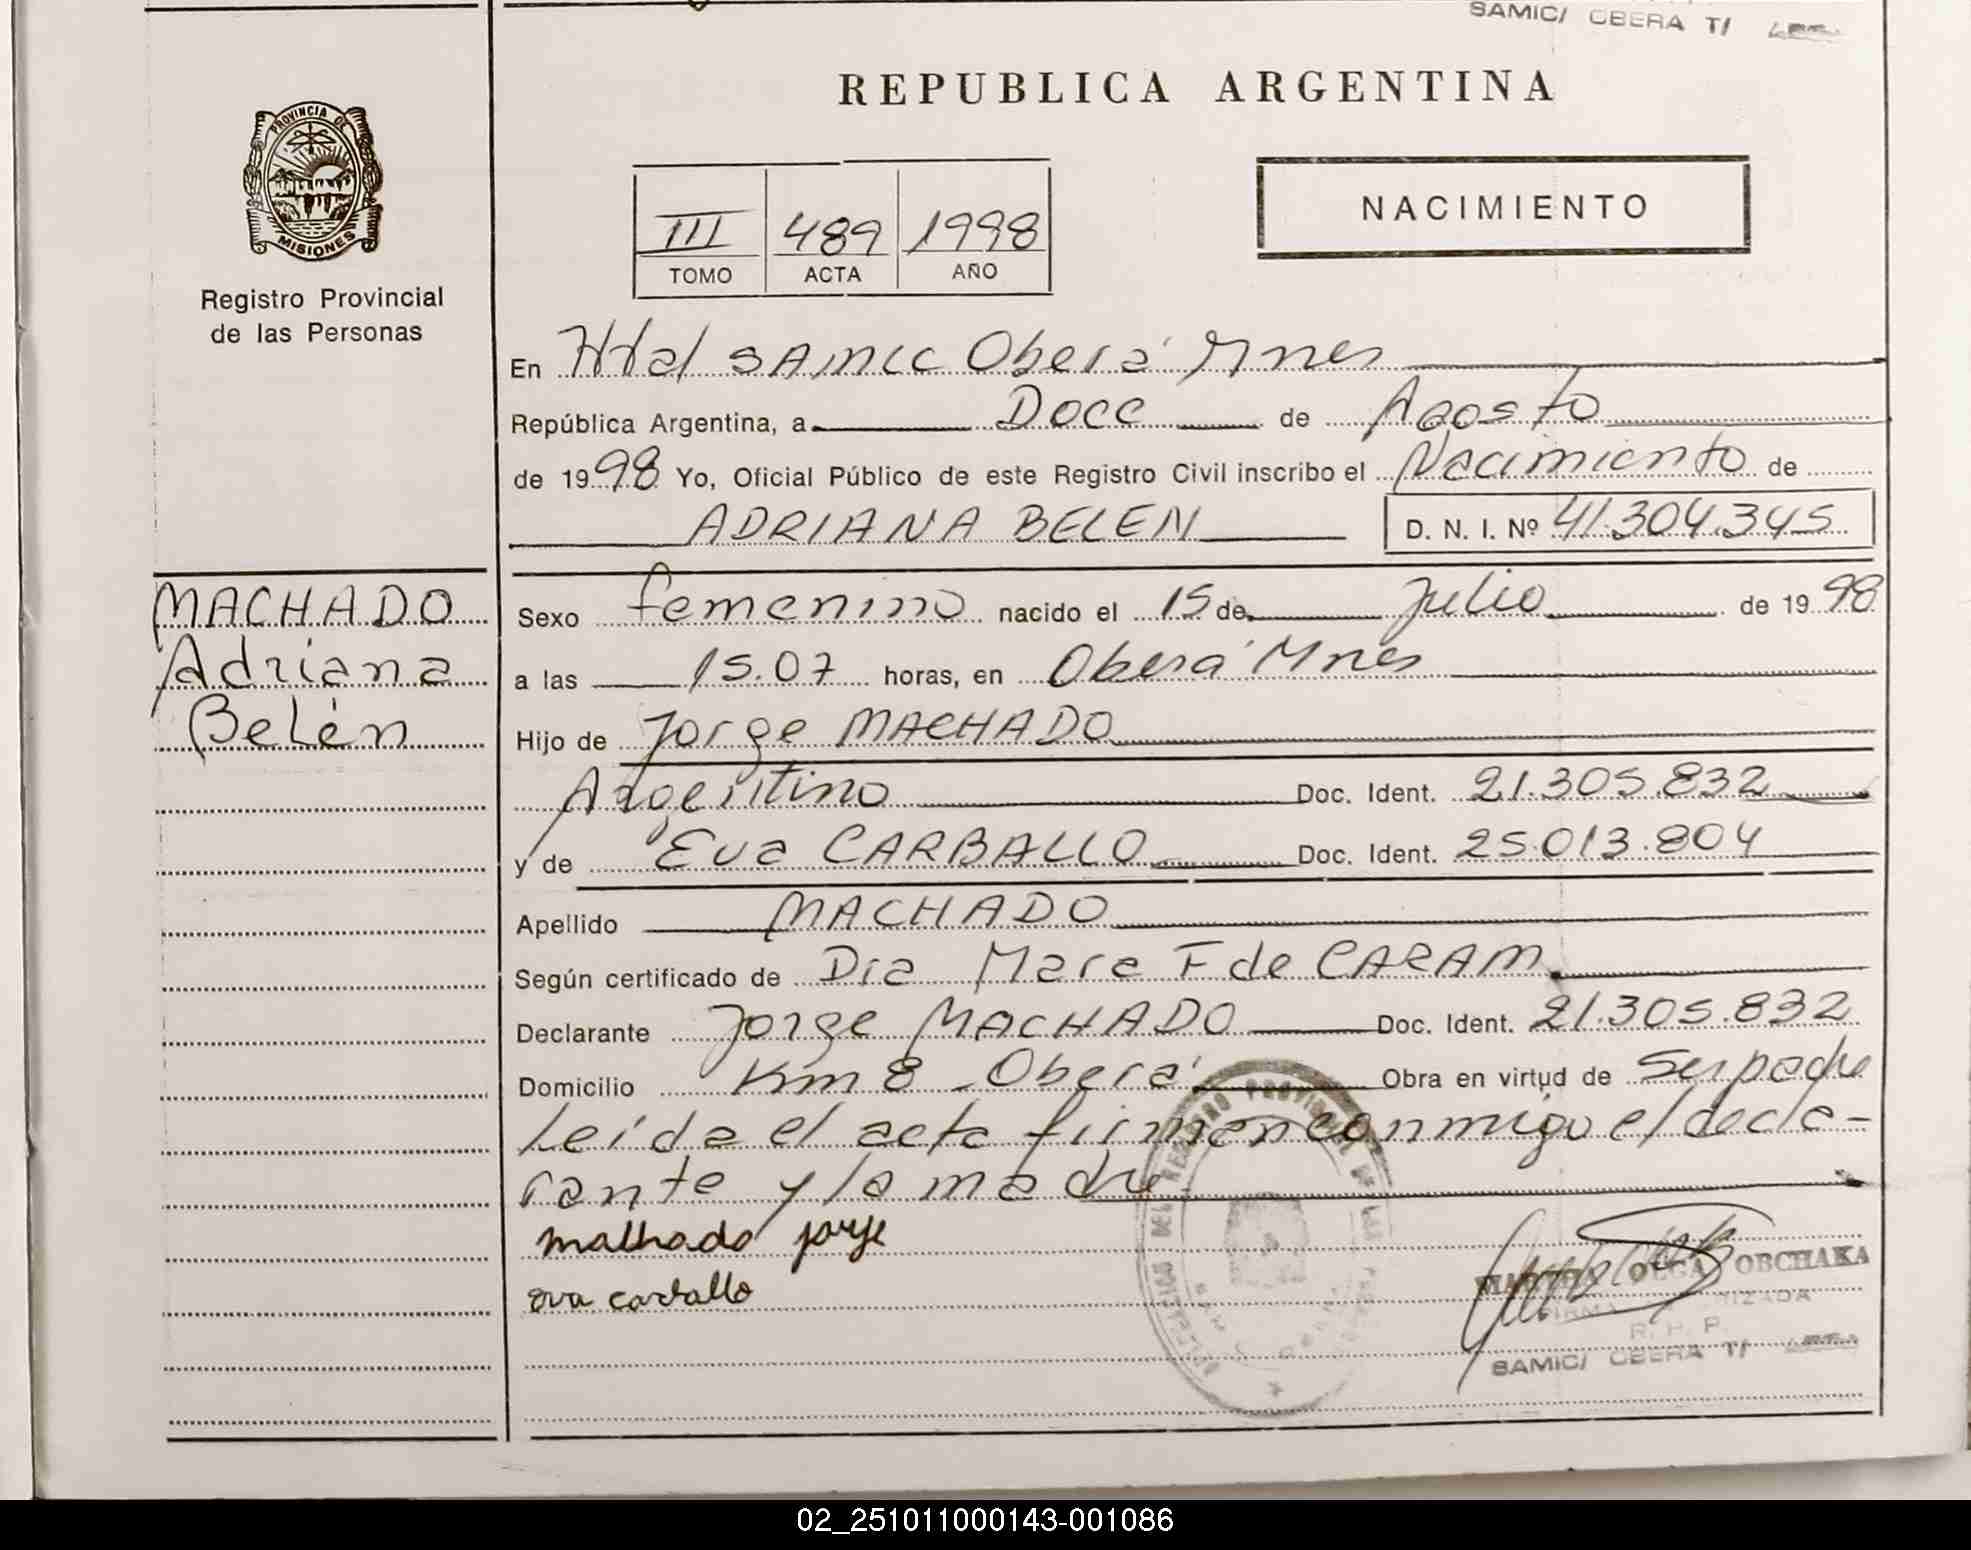 SAMIC/ OBERA T/
REPUBLICA ARGENTINA
PROVINCIA DE
MISIONES
Registro Provincial
de las Personas
III 489 1998
TOMO ACTA AÑO
NACIMIENTO
En Htal SAMIC Oberá Mnes
República Argentina, a Doce de Agosto
de 1998 Yo, Oficial Público de este Registro Civil inscribo el Nacimiento de
ADRIANA BELEN D. N. I. Nº 41.304.345
MACHADO
Adriana
Belén
Sexo femenino nacido el 15 de Julio de 1998
a las 15.07 horas, en Oberá Mnes
Hijo de Jorge MACHADO
Argentino Doc. Ident. 21.305.832
y de Eva CARBALLO Doc. Ident. 25.013.804
Apellido MACHADO
Según certificado de Dra Mara F de CARAM
Declarante Jorge MACHADO Doc. Ident. 21.305.832
Domicilio Km 8 - Oberá Obra en virtud de Ser padre
Leída el acta firman conmigo el decla-
rante y la madre
malhado jorje
eva carballo
DEL REGISTRO PROVINCIAL DE LAS
MARTHA OLGA OBCHAKA
FIRMA AUTORIZADA
R. P. P.
SAMIC/ OBERA T/
02_251011000143-001086